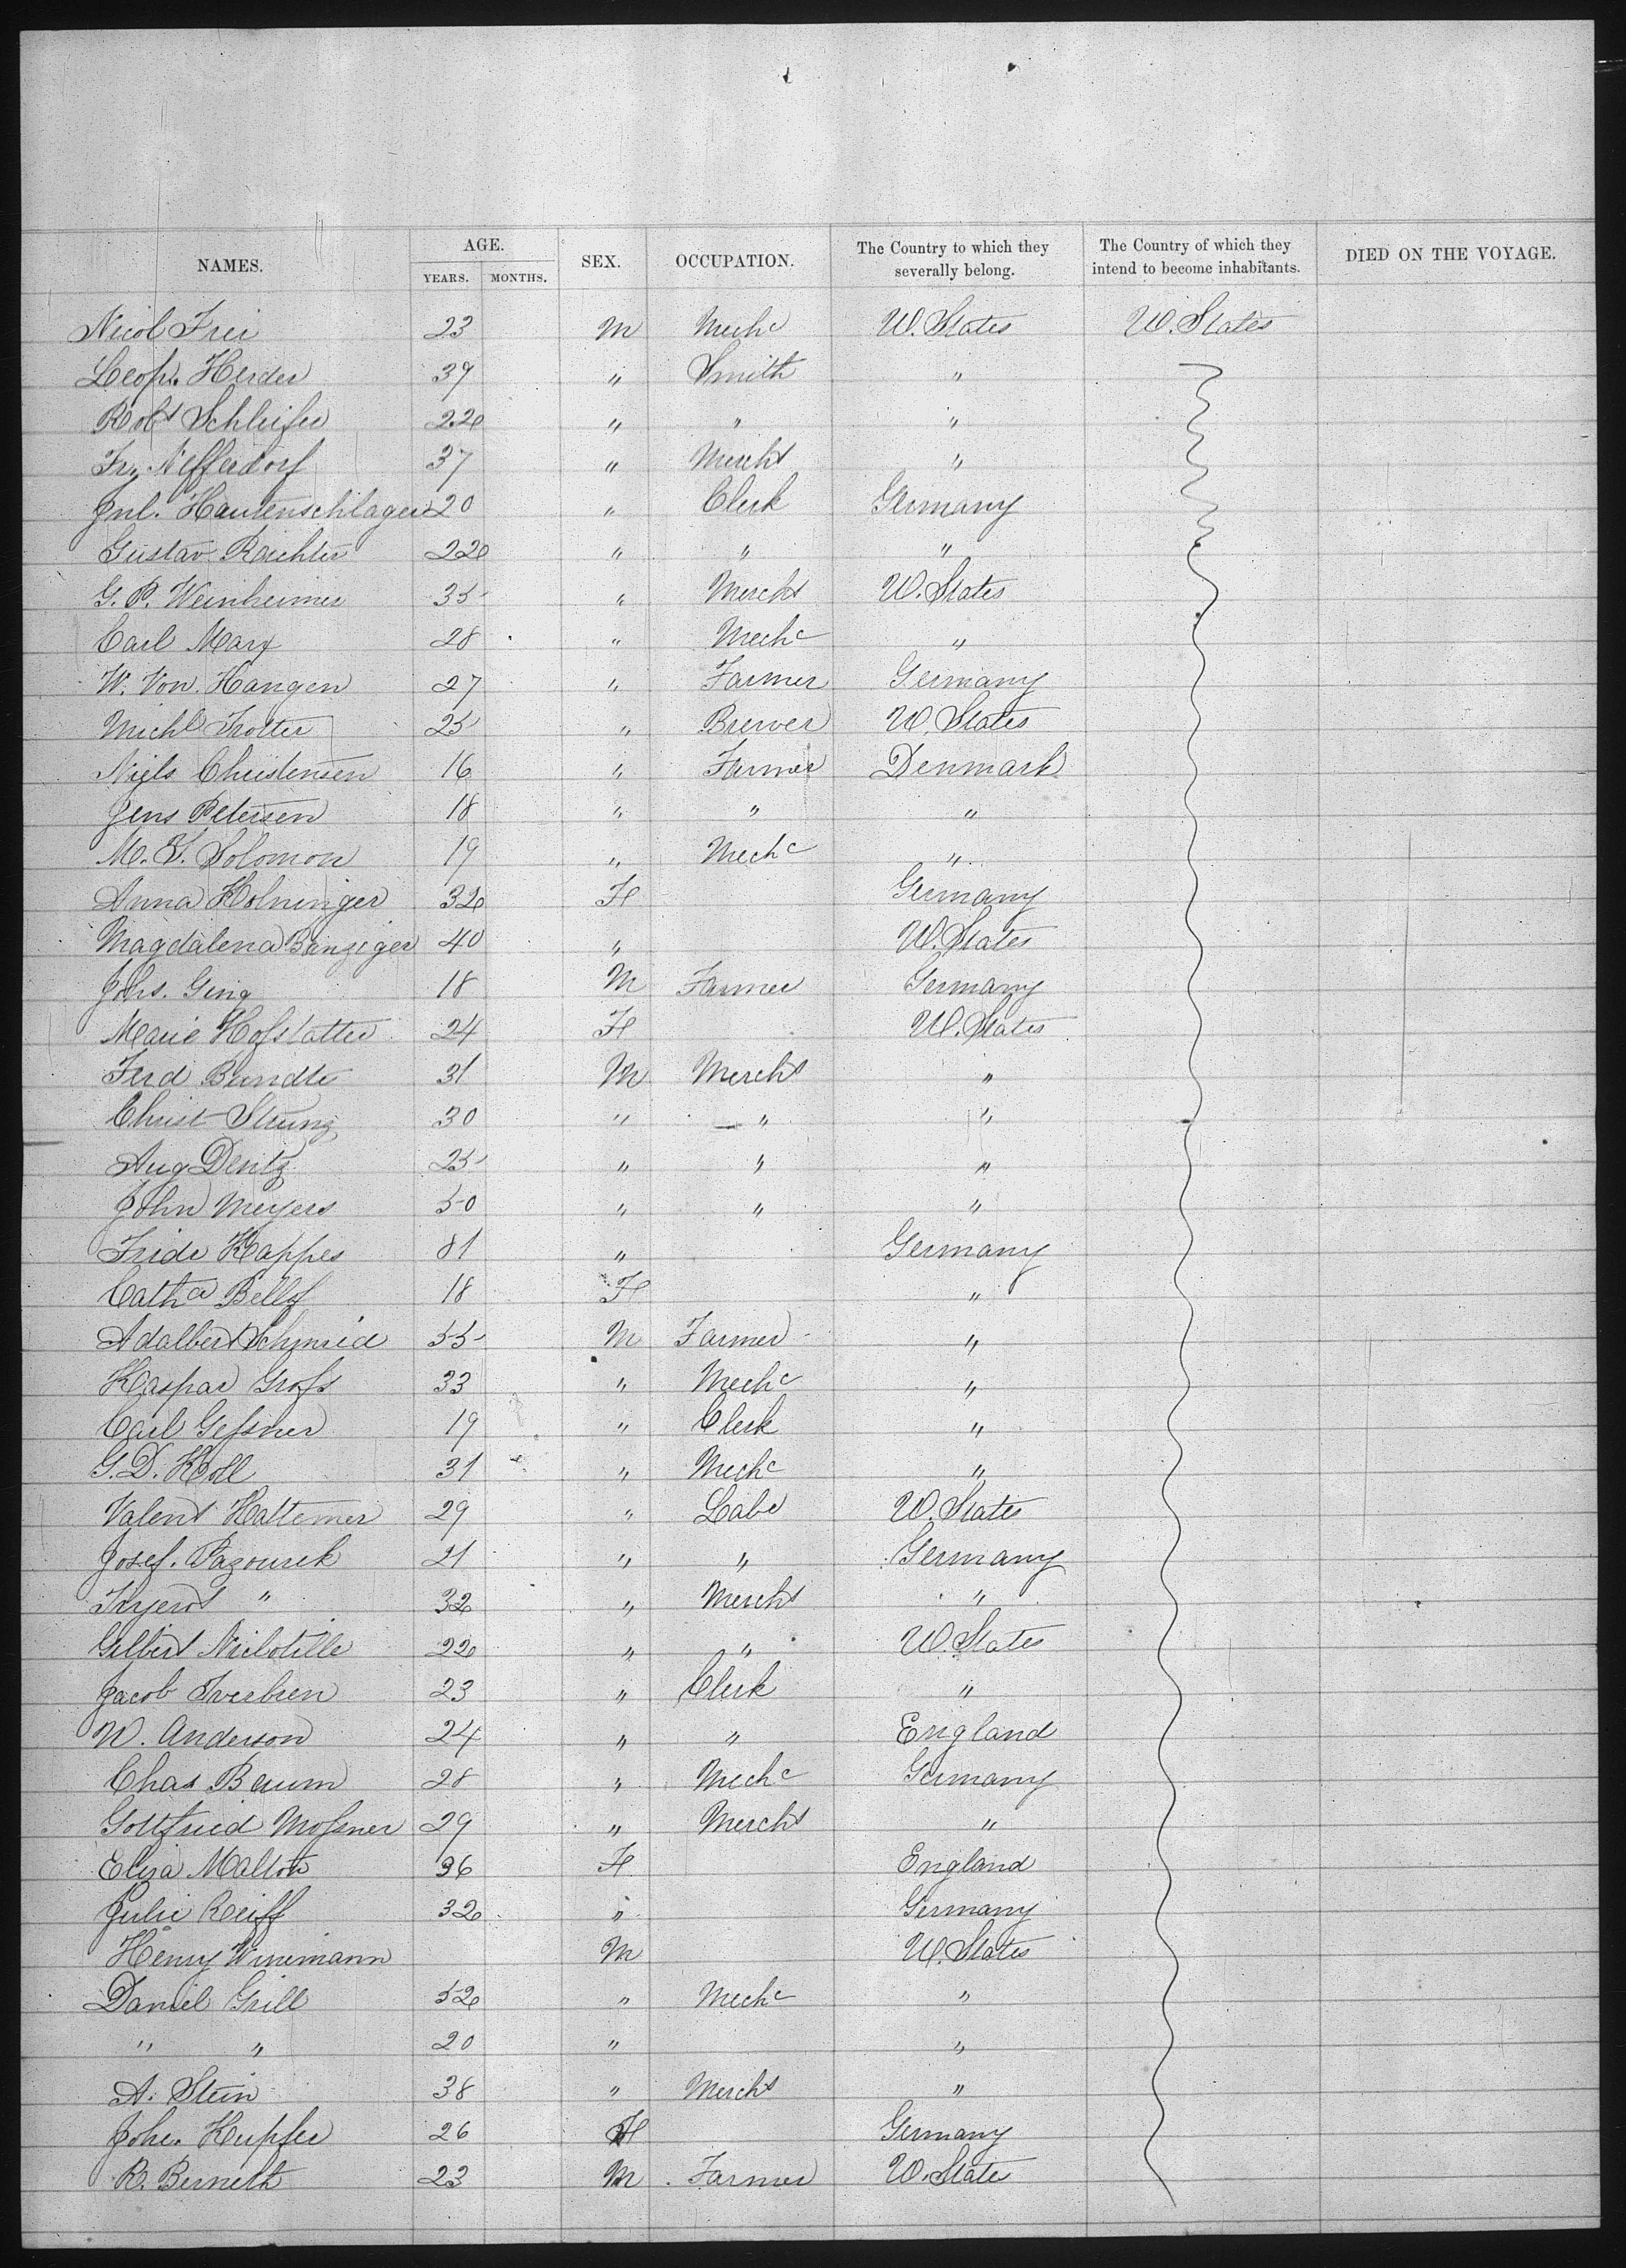 NAMES. AGE. SEX. OCCUPATION. The Country to which they severally belong. The Country of which they intend to become inhabitants. DIED ON THE VOYAGE.
YEARS. MONTHS.
Nicol Frei 23 M Mechc U. States U. States
Leop. Herder 39 " Smith "
Robt Schleifer 22 " " "
Fr. Nefferdorf 37 " Mercht "
Jul. Hautenschlager 20 " Clerk Germany
Gustav Reichter 22 " " "
G. P. Weinheimer 35 " Mercht U. States
Carl Marx 28 " Mechc "
W. Von Hangen 27 " Farmer Germany
Michl Trotter 25 " Brewer U. States
Niels Christensen 16 " Farmer Denmark
Jens Petersen 18 " " "
M. S. Solomon 19 " Mechc "
Anna Holninger 32 F Germany
Magdalena Banziger 40 " U. States
Johs. Ging 18 M Farmer Germany
Marie Hofstatter 24 F U. States
Ferd Bundte 31 M Mercht "
Christ Strung 30 " " "
Aug Dentz 25 " " "
John Meyers 50 " " "
Fride Kappes 81 " Germany
Catha Bellof 18 F "
Adalbert Schmid 55 M Farmer "
Kaspar Grofs 33 " Mechc "
Carl Gefsner 19 " Clerk "
G. D. Koll 31 " Mechc "
Valent Hattemer 29 " Labr U. States
Josef. Pazourek 21 " " Germany
" 32 " Mercht "
Gilbert 22 " " U. States
Jacob Iverbsen 23 " Clerk "
W. Anderson 24 " " England
Chas Baum 28 " Mechc Germany
Gottfried Mofsner 29 " Mercht "
Eliza Malton 36 F England
Julie Reiff 32 " Germany
Henry Winemann M U. States
Daniel Grill 52 " Mechc "
" " 20 " "
A. Stein 38 " Mercht "
Johe. Kupfer 26 F Germany
R. Berneth 23 M Farmer U. State